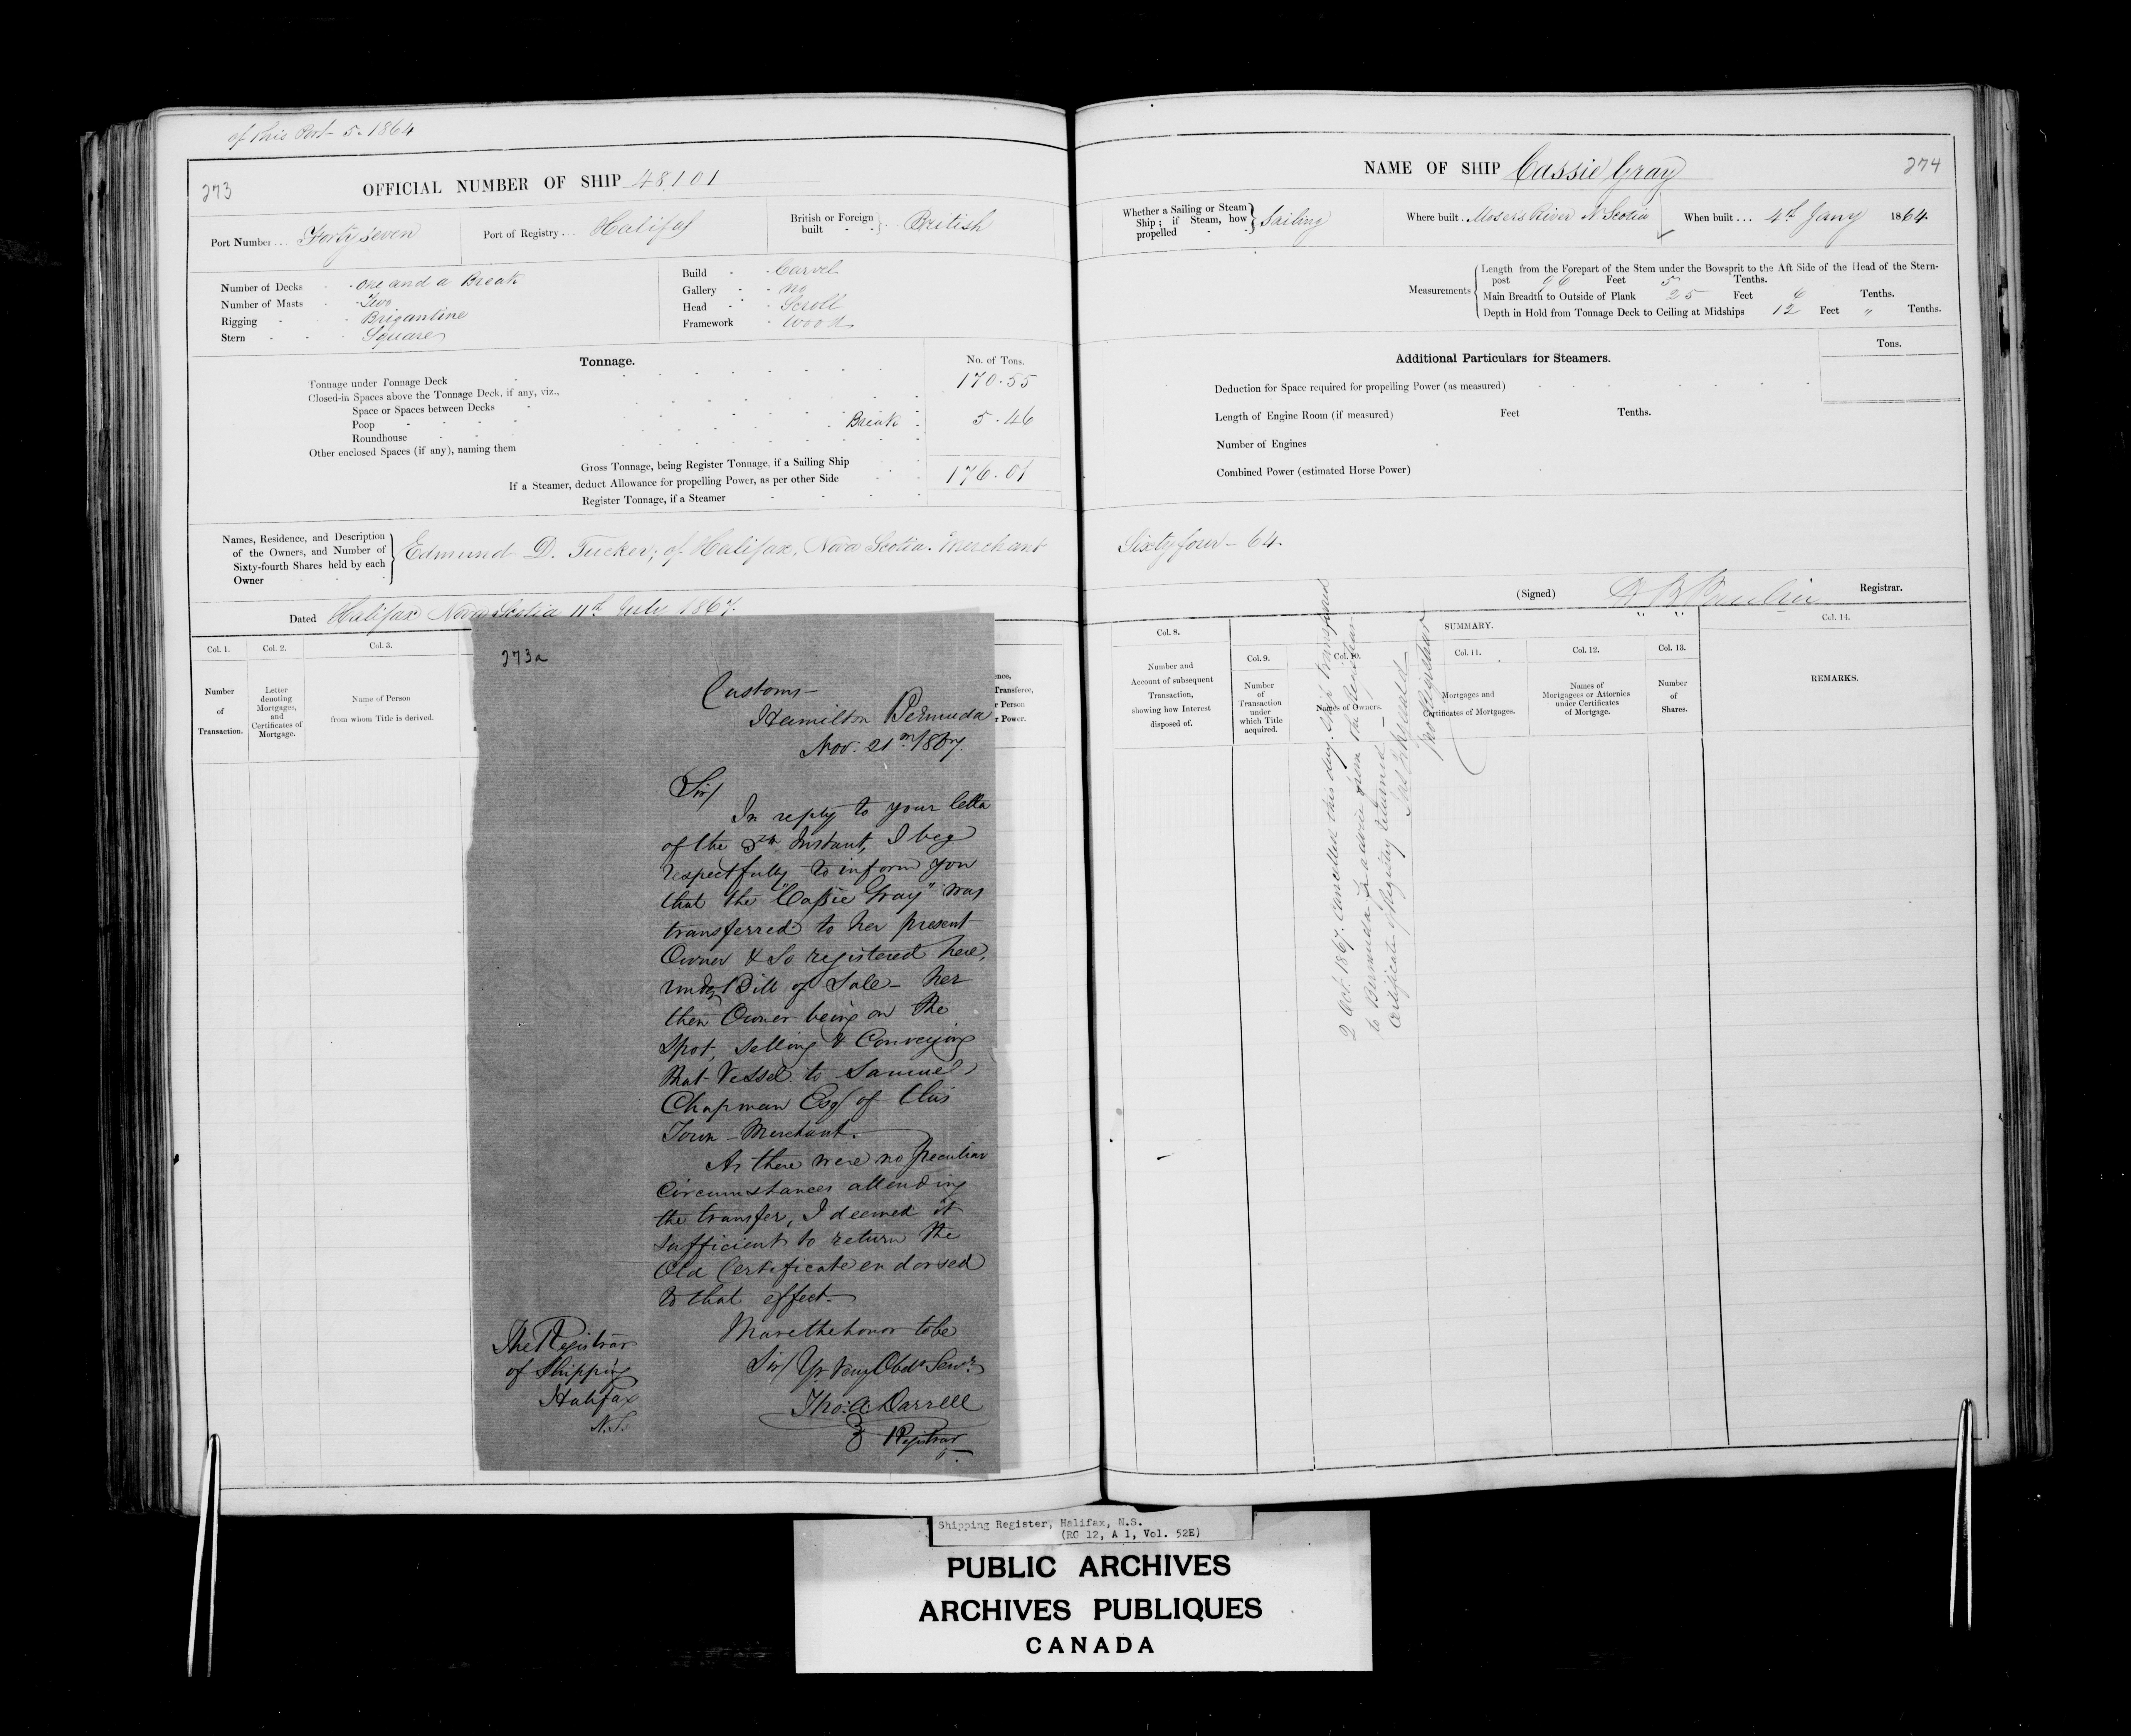 of this Port 5. 1864
273
OFFICIAL NUMBER OF SHIP 48,101
Port Number... Forty seven
Port of Registry... Halifax
British or Foreign built - - } British
Number of Decks - one and a Break
Number of Masts - Two
Rigging - - Brigantine
Stern - - - Square
Build - - Carvel
Gallery - - no
Head - - Scroll
Framework - Wood
Tonnage.
No. of Tons.
Tonnage under Tonnage Deck 170.55
Closed-in Spaces above the Tonnage Deck, if any, viz.,
Space or Spaces between Decks
Poop Break 5.46
Roundhouse
Other enclosed Spaces (if any), naming them
Gross Tonnage, being Register Tonnage, if a Sailing Ship
If a Steamer, deduct Allowance for propelling Power, as per other Side 176.01
Register Tonnage, if a Steamer
Names, Residence, and Description
of the Owners, and Number of
Sixty-fourth Shares held by each
Owner
Edmund D. Tucker; of Halifax, Nova Scotia. Merchant
Dated Halifax Nova Scotia 11th July 1867.
Col. 1.
Number
of
Transaction.
Col. 2.
Letter
denoting
Mortgages,
and
Certificates of
Mortgage.
Col. 3.
Name of Person
from whom Title is derived.
ence,
Transferee,
r Person
r Power.
273a
Customs
Hamilton Bermuda
Nov. 21st 1867.
Sir/
In reply to your letter
of the Instant, I beg
respectfully to inform you
that the "Cassie Gray" was
transferred to her present
Owner & so registered here,
under Bill of Sale - her
then Owner being on the
Spot, selling & Conveying
that Vessel to Samuel
Chapman Esq/ of this
Town - Merchant.
As there were no peculiar
Circumstances attending
the transfer, I deemed it
sufficient to return the
Old Certificate endorsed
to that effect.
I have the honor to be
Sir/ Yr Very Obdt Servt
Tho: A: Darrell
Registrar
The Registrar
of Shipping
Halifax
N.S.
NAME OF SHIP Cassie Gray
274
Whether a Sailing or Steam
Ship; if Steam, how
propelled - - } Sailing
Where built. Mosers River N Scotia
When built... 4th Jany 1864
Measurements
Length from the Forepart of the Stem under the Bowsprit to the Aft Side of the Head of the Stern-
post 96 Feet 5 Tenths.
Main Breadth to Outside of Plank 25 Feet 6 Tenths.
Depth in Hold from Tonnage Deck to Ceiling at Midships 12 Feet " Tenths.
Additional Particulars for Steamers.
Tons.
Deduction for Space required for propelling Power (as measured)
Length of Engine Room (if measured) Feet Tenths.
Number of Engines
Combined Power (estimated Horse Power)
Sixty four - 64.
(Signed) Registrar.
Col. 8.
Number and
Account of subsequent
Transaction,
showing how Interest
disposed of.
SUMMARY.
Col. 9.
Number
of
Transaction
under
which Title
acquired.
Col. 10.
Names of Owners.
Col. 11.
Mortgages and
Certificates of Mortgages.
Col. 12.
Names of
Mortgagees or Attornies
under Certificates
of Mortgage.
Col. 13.
Number
of
Shares.
Col. 14.
REMARKS.
2 Oct. 1867. Cancelled this day. Ship transferred
to Bermuda for advice from the Registrar
Certificate of Registry returned -
Registrar
Shipping Register, Halifax, N.S.
(RG 12, A 1, Vol. 52E)
PUBLIC ARCHIVES
ARCHIVES PUBLIQUES
CANADA